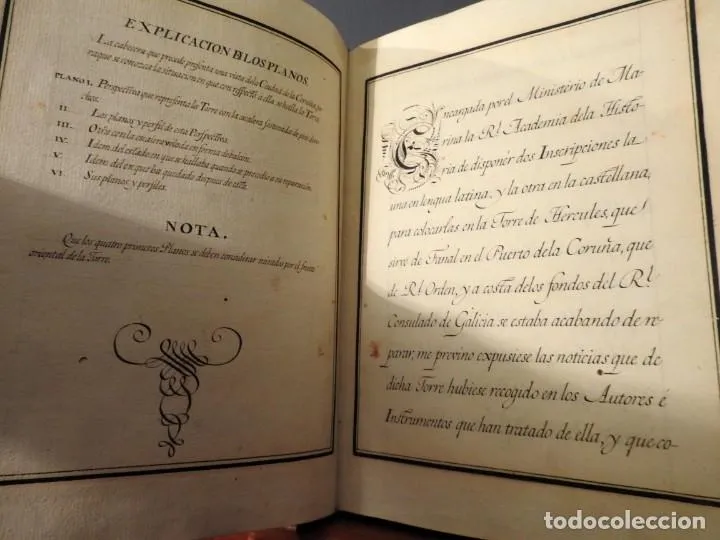 EXPLICACION DE LOS PLANOS.
La cabecera que precede presenta una vista dela Ciudad de la Coruña pa-
raque se conozca la situacion en que con respecto a ella, se halla la Torre.
PLANO I. Perspectiva que representa la Torre con la escalera sostenida de
II. Los planos y perfil de esta Perspectiva.
III. Otro con la escalera volada en forma de balcón.
IV. Idem del estado en que se hallaba quando se procedió a su reparación.
V. Idem del en que ha quedado despues de esta.
VI. Sus planos y perfiles.
NOTA.
Que los quatro primeros Planos se deben considerar mirados por el frente
oriental de la Torre.
Encargada porel Ministerio de Ma-
rina la Rl. Academia dela Histo-
ria de disponér dos Inscripciones la
una en lengua latina, y la otra en la castellana,
para colocarlas en la Torre de Hercules, que
sirve de Fanal en el Puerto dela Coruña, que
de Rl. Orden, y a costa delos fondos del Rl.
Consulado de Galicia se estaba acabando de re-
parar; me previno expusiese las noticias que de
dicha Torre hubiese recogido en los Autores é
Instrumentos que han tratado de ella, y que co-
todocoleccion